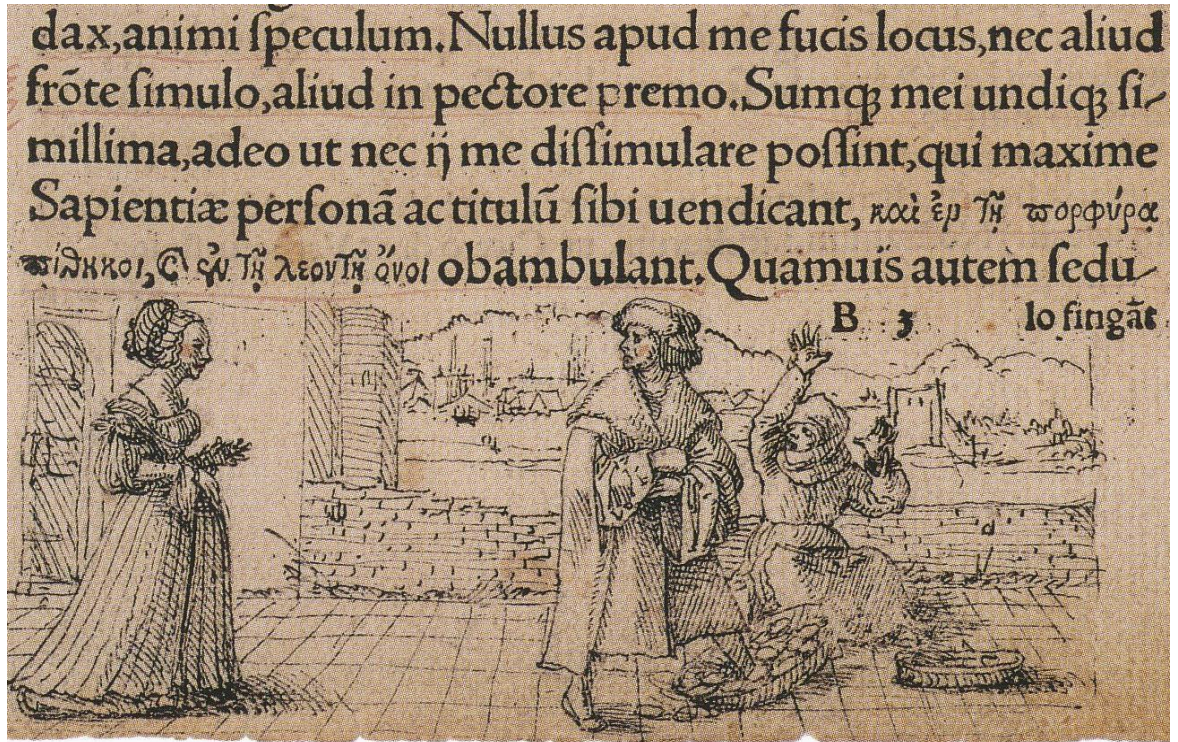 dax,animi ſpeculum.Nullus apud me fucis locus,nec aliud
frõte ſimulo,aliud in pectore premo.Sumq́ꝫ mei undiqꝫ ſi-
millima,adeo ut nec ij me diſſimulare poſſint,qui maxime
Sapientiæ perſonã ac titulũ ſibi uendicant, καὶ ἐν τῇ πορφύρᾳ
πίθηκοι, καὶ ἐν τῇ λεοντῇ ὄνοι obambulant.Quamuis autem ſedu-
B 3 lo fingãt